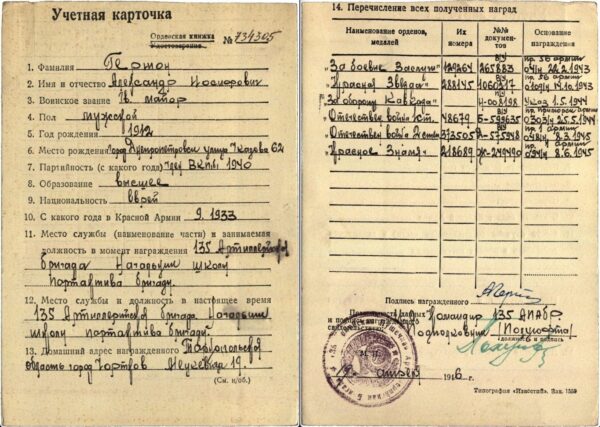 Учетная карточка
Орденская книжка
Удостоверение
№ 734305
1. Фамилия Гертон
2. Имя и отчество Александр Иосифович
3. Воинское звание Гв. майор
4. Пол мужской
5. Год рождения 1912
6. Место рождения город Днепропетровск улица 62
7. Партийность (с какого года) ВКП(б) 1940
8. Образование высшее
9. Национальность еврей
10. С какого года в Красной Армии 9. 1933
11. Место службы (наименование части) и занимаемая
должность в момент награждения 135 Артиллерийская
бригада школы
портактива бригады
12. Место службы и должность в настоящее время
135 Артиллерийская бригада
школы портактива бригады
13. Домашний адрес награжденного
область город 19.
(См. н/об.)
14. Перечисление всех полученных наград
Наименование орденов, медалей
Их номера
№№ документов
Основание награждения
"За боевые Заслуги" 129264 265883 пр. 56 армии 041/н 22.2.1943
"Красная Звезда" 288145 1060317 пр. 56 армии 14.10.1943
"За оборону Кавказа" Н-008198 Указ 1.5.1944
"Отечествен войны Iст. 48679 Б-599635 пр. Приморск армии 25.5.1944
"Отечествен войны 313505 пр. 1 армии 8.3.1945
"Красное Знамя" 218689 Ж-249490 8.6.1945
Подпись награжденного
Правильность данных
и подпись награжденного
свидетельствую
Командир 135 АПАБр
Подполковник
(должность и подпись)
1946 г.
Типография «Известий». Зак. 1559